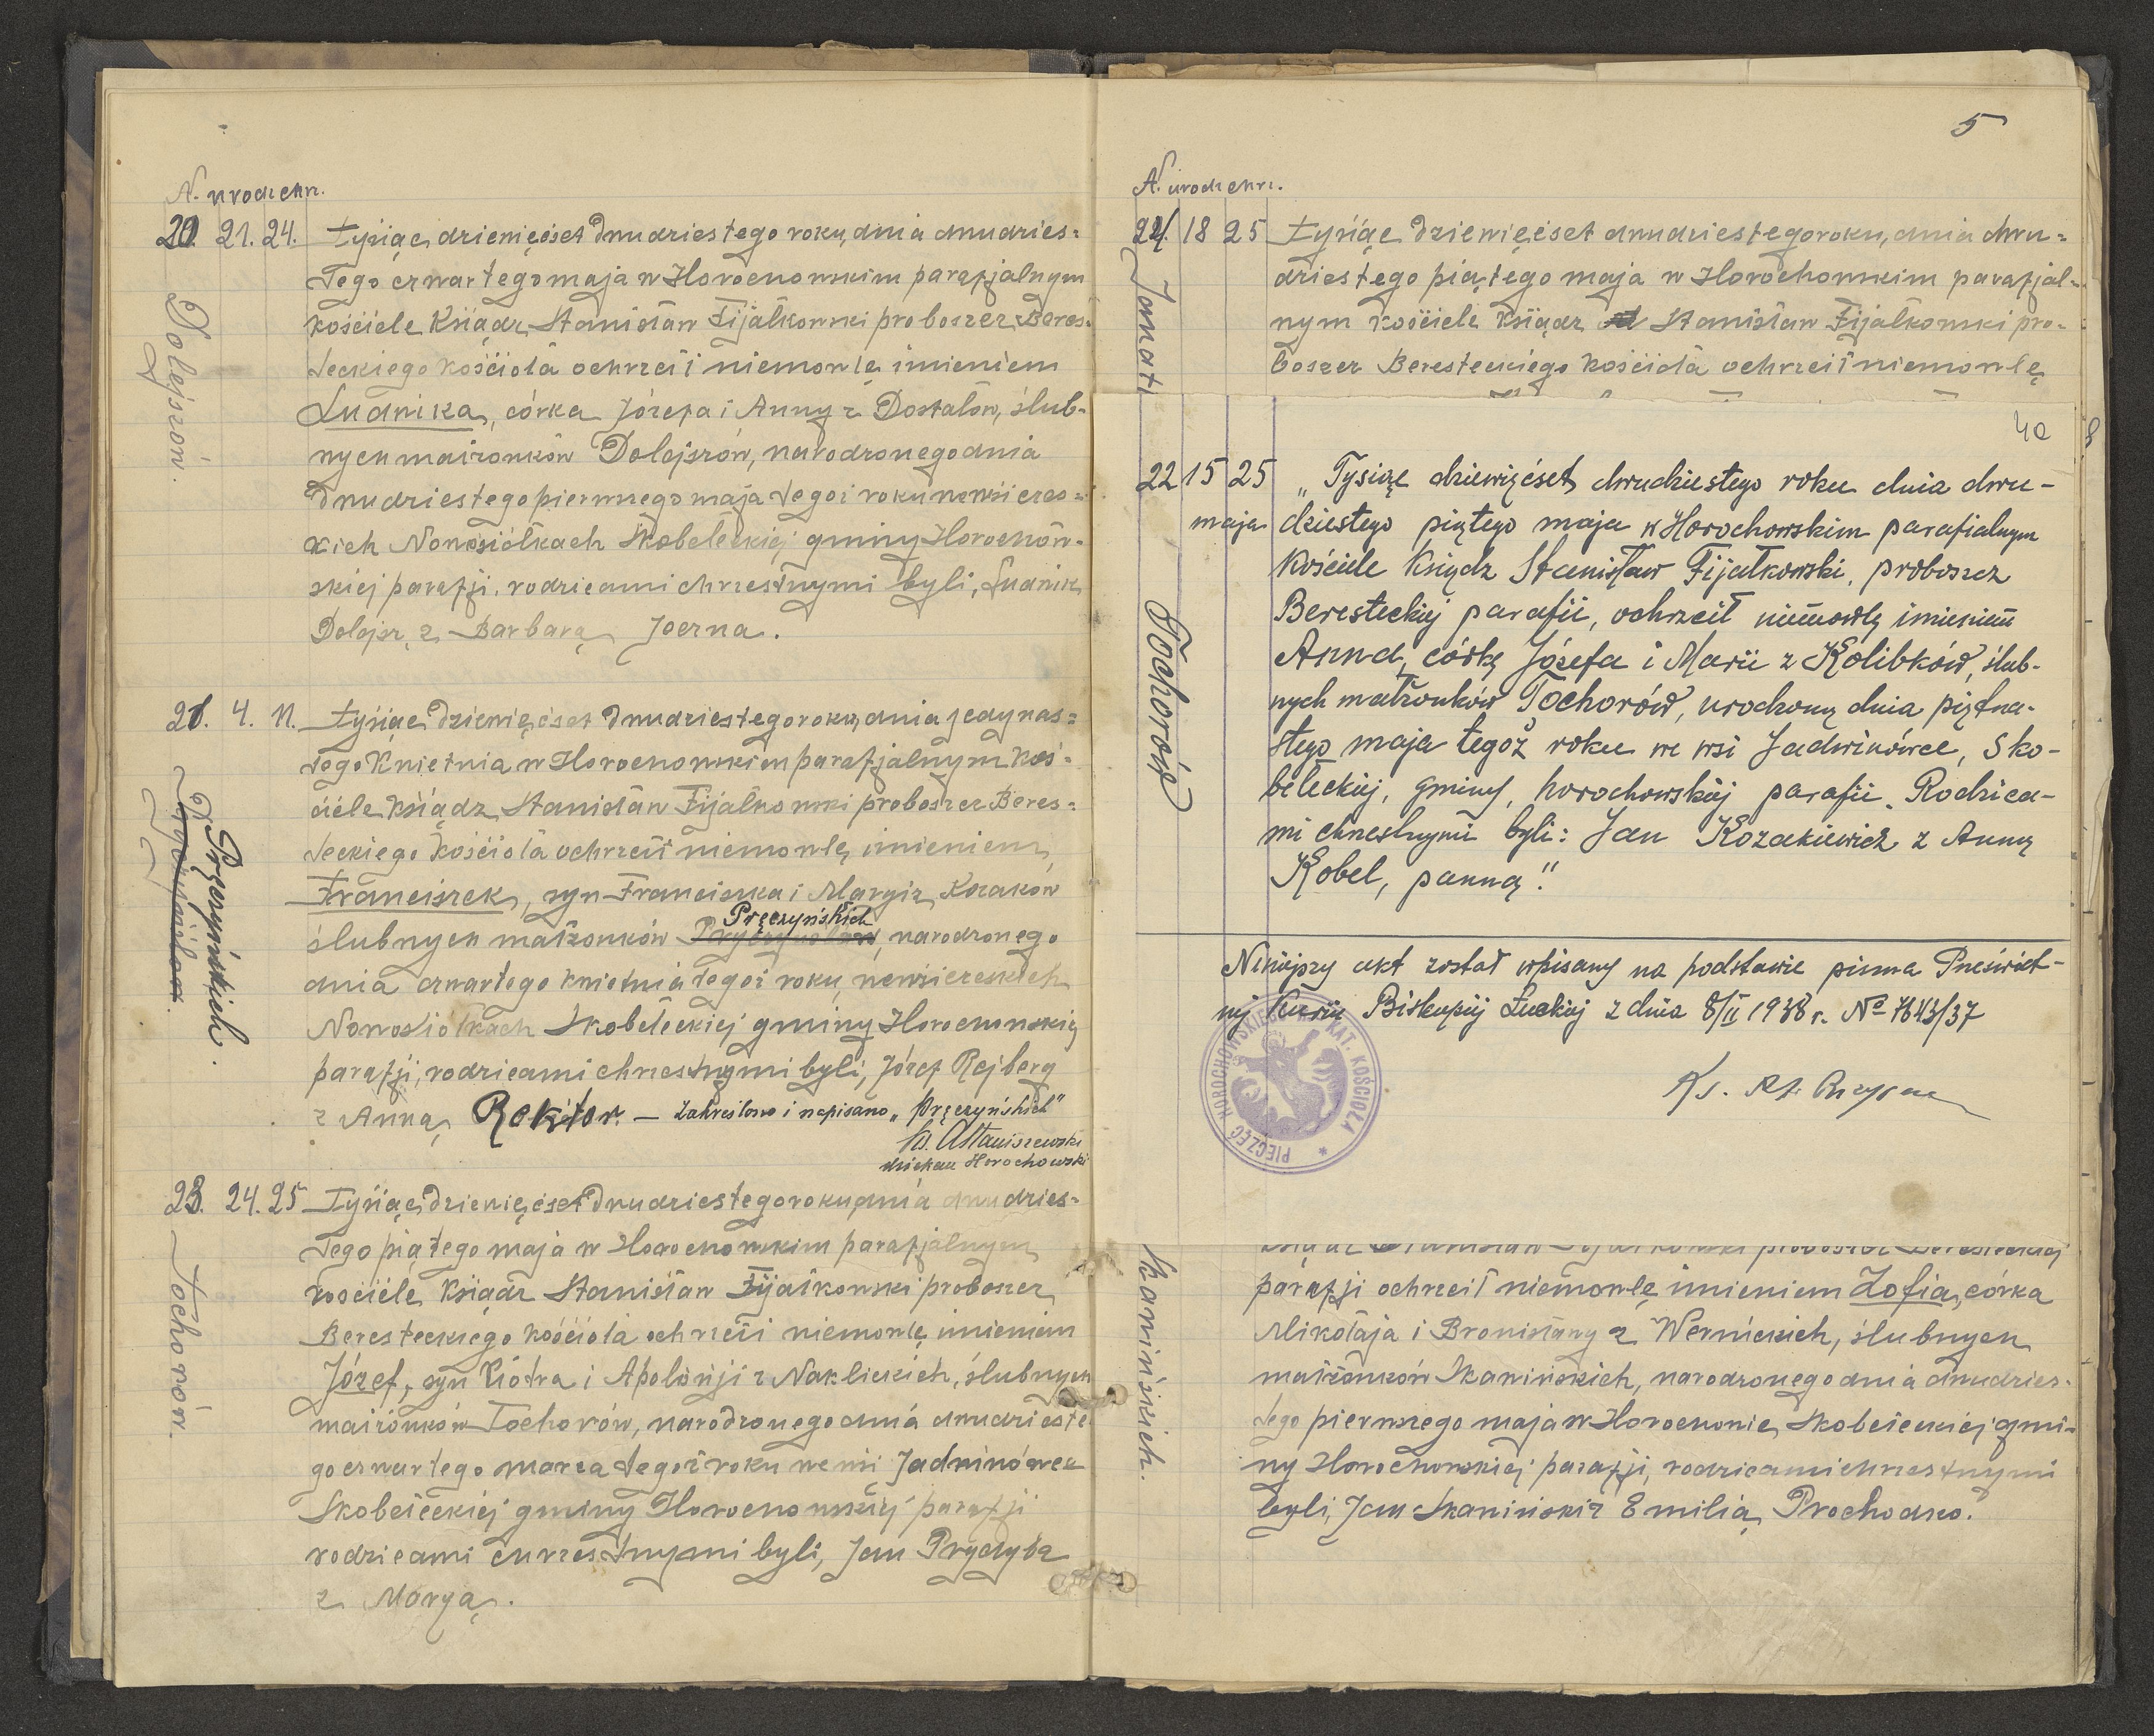 N. urodz chrz.
20. 21. 24. Tysiąc dziewięćset dwudziestego roku, dnia dwudzies=
tego czwartego maja w Horochowskim parafjalnym
kościele Ksiądz Stanisław Fijałkowski proboszcz Beres=
teckiego kościoła ochrzcił niemowlę imieniem
Ludwika, córka Józefa i Anny z Dostalów, ślub-
nych małżonków Dolejszów, narodzonego dnia
dwudziestego pierwszego maja tegoż roku we wsi czes=
kich Nowosiółkach Skobełeckiej gminy Horochow-
skiej parafji, rodzicami chrzestnymi byli, Ludwik
Dolejsz z Barbarą Joerna.
Dolejszów.
21. 4. 11. Tysiąc dziewięćset dwudziestego roku, dnia jedynas=
tego Kwietnia w Horochowskim parafjalnym koś=
ciele Ksiądz Stanisław Fijałkowski proboszcz Beres=
teckiego kościoła ochrzcił niemowlę imieniem
Franciszek, syn Franciszka i Maryi z Kozaków
Pręczyńskich
ślubnych małżonków, narodzonego
dnia czwartego kwietnia tegoż roku, we wsi czeskich
Nowosiółkach Skobełeckiej gminy Horochowskiej
parafji, rodzicami chrzestnymi byli, Józef Rejberg
z Anną Rektor. — Zakreślono i napisano „Pręczyńskich"
Ks. A Staniszewski
dziekan Horochowski
Pręczyńskich.
23. 24. 25 Tysiąc dziewięćset dwudziestego roku dnia dwudzies=
tego piątego maja w Horochowskim parafjalnym
kościele Ksiądz Stanisław Fijałkowski proboszcz
Beresteckiego kościoła ochrzcił niemowlę imieniem
Józef, syn Piotra i Apolonji z Naklickich, ślubnych
małżonków Tochorów, narodzonego dnia dwudzieste
go czwartego marca tegoż roku we wsi Jadwinówce
Skobełeckiej gminy Horochowskiej parafji
rodzicami chrzestnymi byli, Jan Pryczyba
z Maryą.
Tochorów.
5
N. urodz chrz.
24. 18 25 Tysiąc dziewięćset dwudziestego roku, dnia dwu=
dziestego piątego maja w Horochowskim parafjal=
nym kościele Ksiądz Stanisław Fijałkowski pro=
boszcz Beresteckiego kościoła ochrzcił niemowlę
Janat
4a
22 15 25 „Tysiąc dziewięćset dwudziestego roku dnia dwu-
maja dziestego piątego maja w Horochowskim parafialnym
Kościele Ksiądz Stanisław Fijałkowski, proboszcz
Beresteckiej parafii, ochrzcił niemowlę imieniem
Anna, córkę Józefa i Marii z Kolibków, ślub-
nych małżonków Tochorów, urodzoną dnia piętna-
stego maja tegoż roku we wsi Jadwinówce, Sko-
bełeckiej, gminy, horochowskiej parafii. Rodzica-
mi chrzestnymi byli: Jan Kozakiewicz z Anną
Kobel, panną."
Tochorów
Niniejszy akt został wpisany na podstawie pisma Przeświet-
nej Kurii Biskupiej Łuckiej z dnia 8/II 1938 r. No 7843/37
PIECZĘĆ HOROCHOWSKIEGO KAT. KOŚCIOŁA *
parafji ochrzcił niemowlę imieniem Zofia, córka
Mikołaja i Bronisławy z Wernickich, ślubnych
małżonków Skanińskich, narodzonego dnia dwudzies-
tego pierwszego maja w Horochowie, Skobełeckiej gmi-
ny Horochowskiej parafji, rodzicami chrzestnymi
byli, Jan Skaniński z Emilią Prochodzo.
Skanińskich.